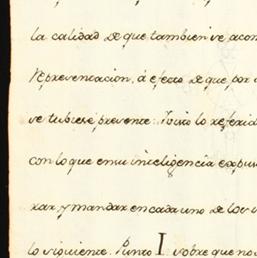 la calidad de que tambien se acom
representacion, á efecto de que por
se tubiese presente. Visto lo referid
con lo que en su inteligencia expus
xar, y mandar en cada uno de los
lo siguiente. Punto I. sobre que no s